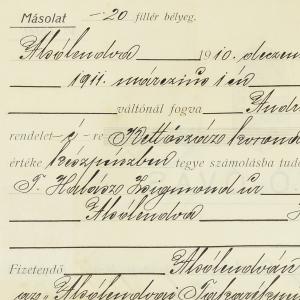 Másolat -20 fillér bélyeg.
Alsólendva 1910. deczem
1911. márczius 1 én
váltónál fogva Andr
rendelet é re Kettőszáz korona
értéke készpénzben tegye számolásba tud
T. Halász Zsigmond úr
Alsólendva
Fizetendő Alsólendván
az „Alsólendvai Takarékpén